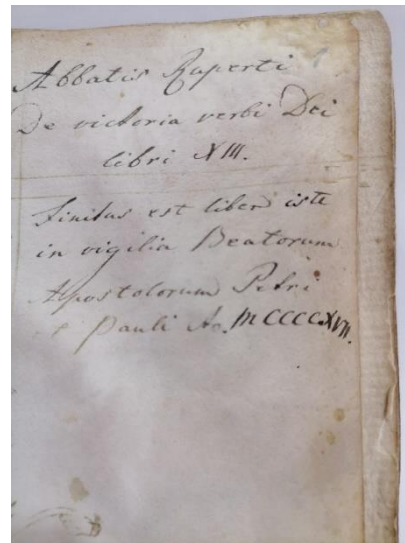 Abbatis Ruperti
De victoria verbi Dei
libri XIII.
Finitus est liber iste
in vigilia Beatorum
Apostolorum Petri
et Pauli Ao. MCCCCXVII.